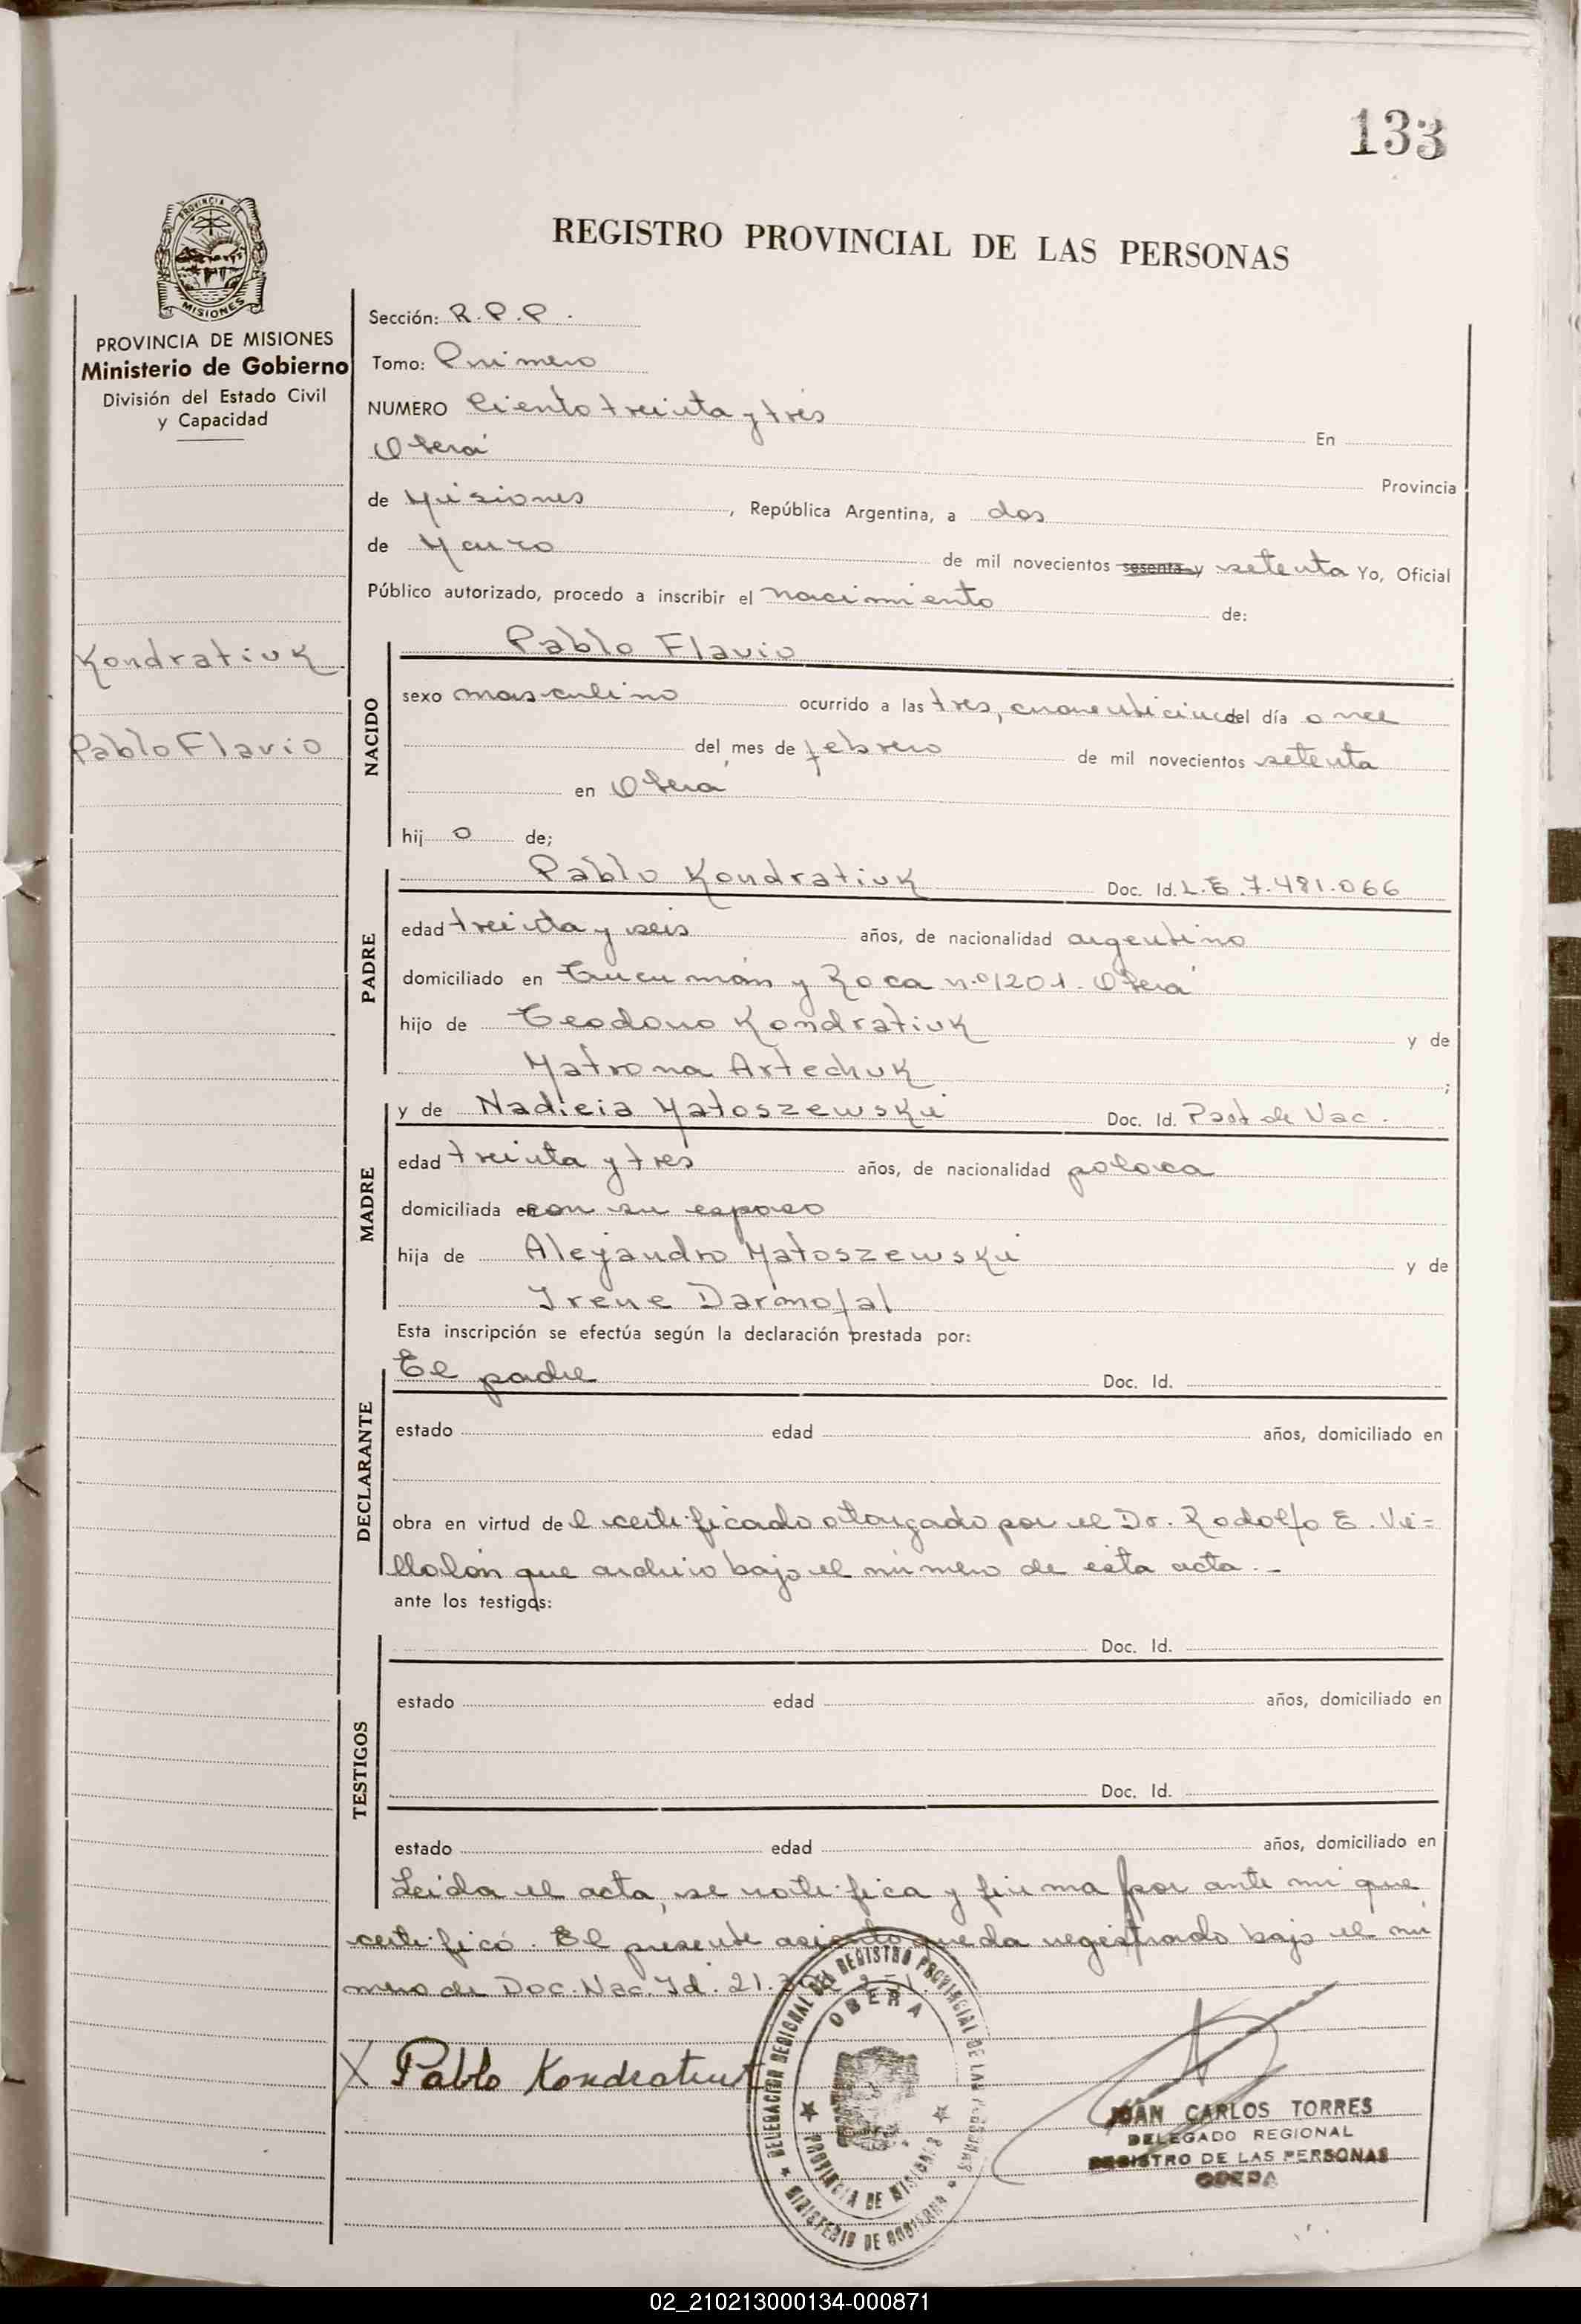 133
PROVINCIA DE MISIONES
REGISTRO PROVINCIAL DE LAS PERSONAS
PROVINCIA DE MISIONES
Ministerio de Gobierno
División del Estado Civil
y Capacidad
Kondratiuk
Pablo Flavio
Sección: R.P.P.
Tomo: Primero
NUMERO Ciento treinta y tres En
Oberá Provincia
de Misiones, República Argentina, a dos
de Marzo de mil novecientos sesenta y setenta Yo, Oficial
Público autorizado, procedo a inscribir el nacimiento de:
NACIDO
Pablo Flavio
sexo masculino ocurrido a las tres, cuarenticinco del día once
del mes de febrero de mil novecientos setenta
en Oberá
hijo de;
PADRE
Pablo Kondratiuk Doc. Id. L.E. 7.481.066
edad treinta y seis años, de nacionalidad argentino
domiciliado en Tucumán y Roca n.º 1201. Oberá
hijo de Teodoro Kondratiuk y de
Matrona Artechuk;
MADRE
y de Nadieia Matoszewski Doc. Id. Part de Nac.
edad treinta y tres años, de nacionalidad polaca
domiciliada en con su esposo
hija de Alejandro Matoszewski y de
Irene Darmofal
Esta inscripción se efectúa según la declaración prestada por:
DECLARANTE
El padre Doc. Id.
estado edad años, domiciliado en
obra en virtud del certificado otorgado por el Dr. Rodolfo E. Vi=
llalón que archivo bajo el número de esta acta.-
ante los testigos:
TESTIGOS
Doc. Id.
estado edad años, domiciliado en
Doc. Id.
estado edad años, domiciliado en
Leida el acta, se notifica y firma por ante mi que
certificó. El presente asiento queda registrado bajo el nú
mero de Doc. Nac. Id. 21.
X Pablo Kondratiuk
DELEGACION REGIONAL DEL REGISTRO PROVINCIAL DE LAS PERSONAS
OBERA
PROVINCIA DE MISIONES
MINISTERIO DE GOBIERNO
JUAN CARLOS TORRES
DELEGADO REGIONAL
REGISTRO DE LAS PERSONAS
OBERA
02_210213000134-000871